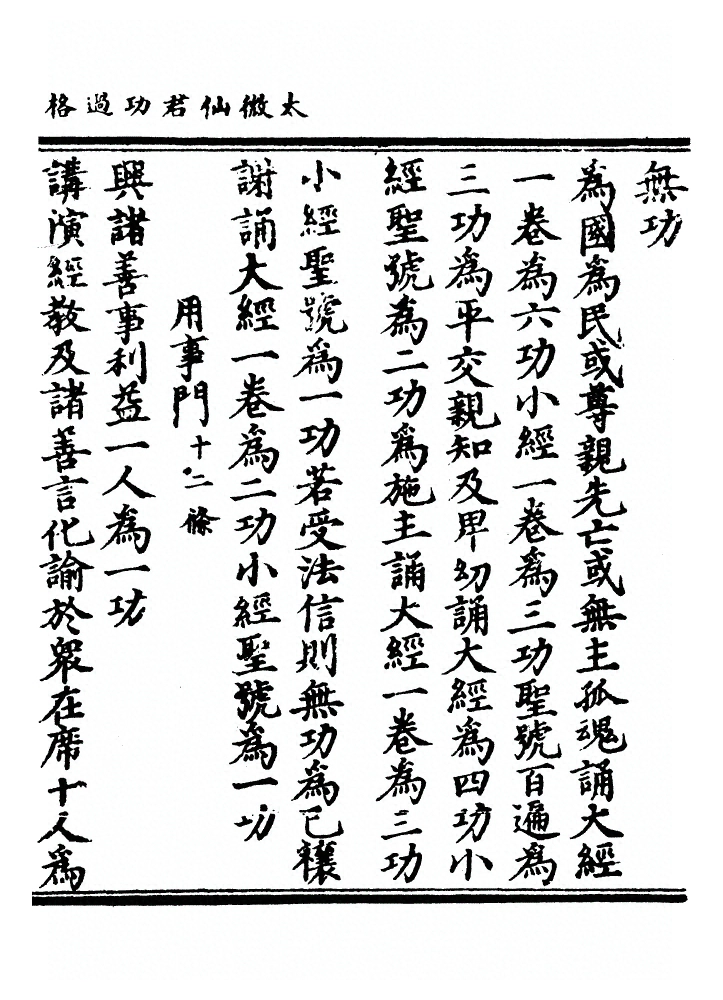 太微仙君功過格
無功
為國為民或尊親先亡或無主孤魂誦大經
一卷為六功小經一卷為三功聖號百遍為
三功為平交親知及卑幼誦大經為四功小
經聖號為二功為施主誦大經一卷為三功
小經聖號為一功若受法信則無功為已禳
謝誦大經一卷為二功小經聖號為一功
用事門十二條
興諸善事利益一人為一功
講演經教及諸善言化諭於眾在席十人為